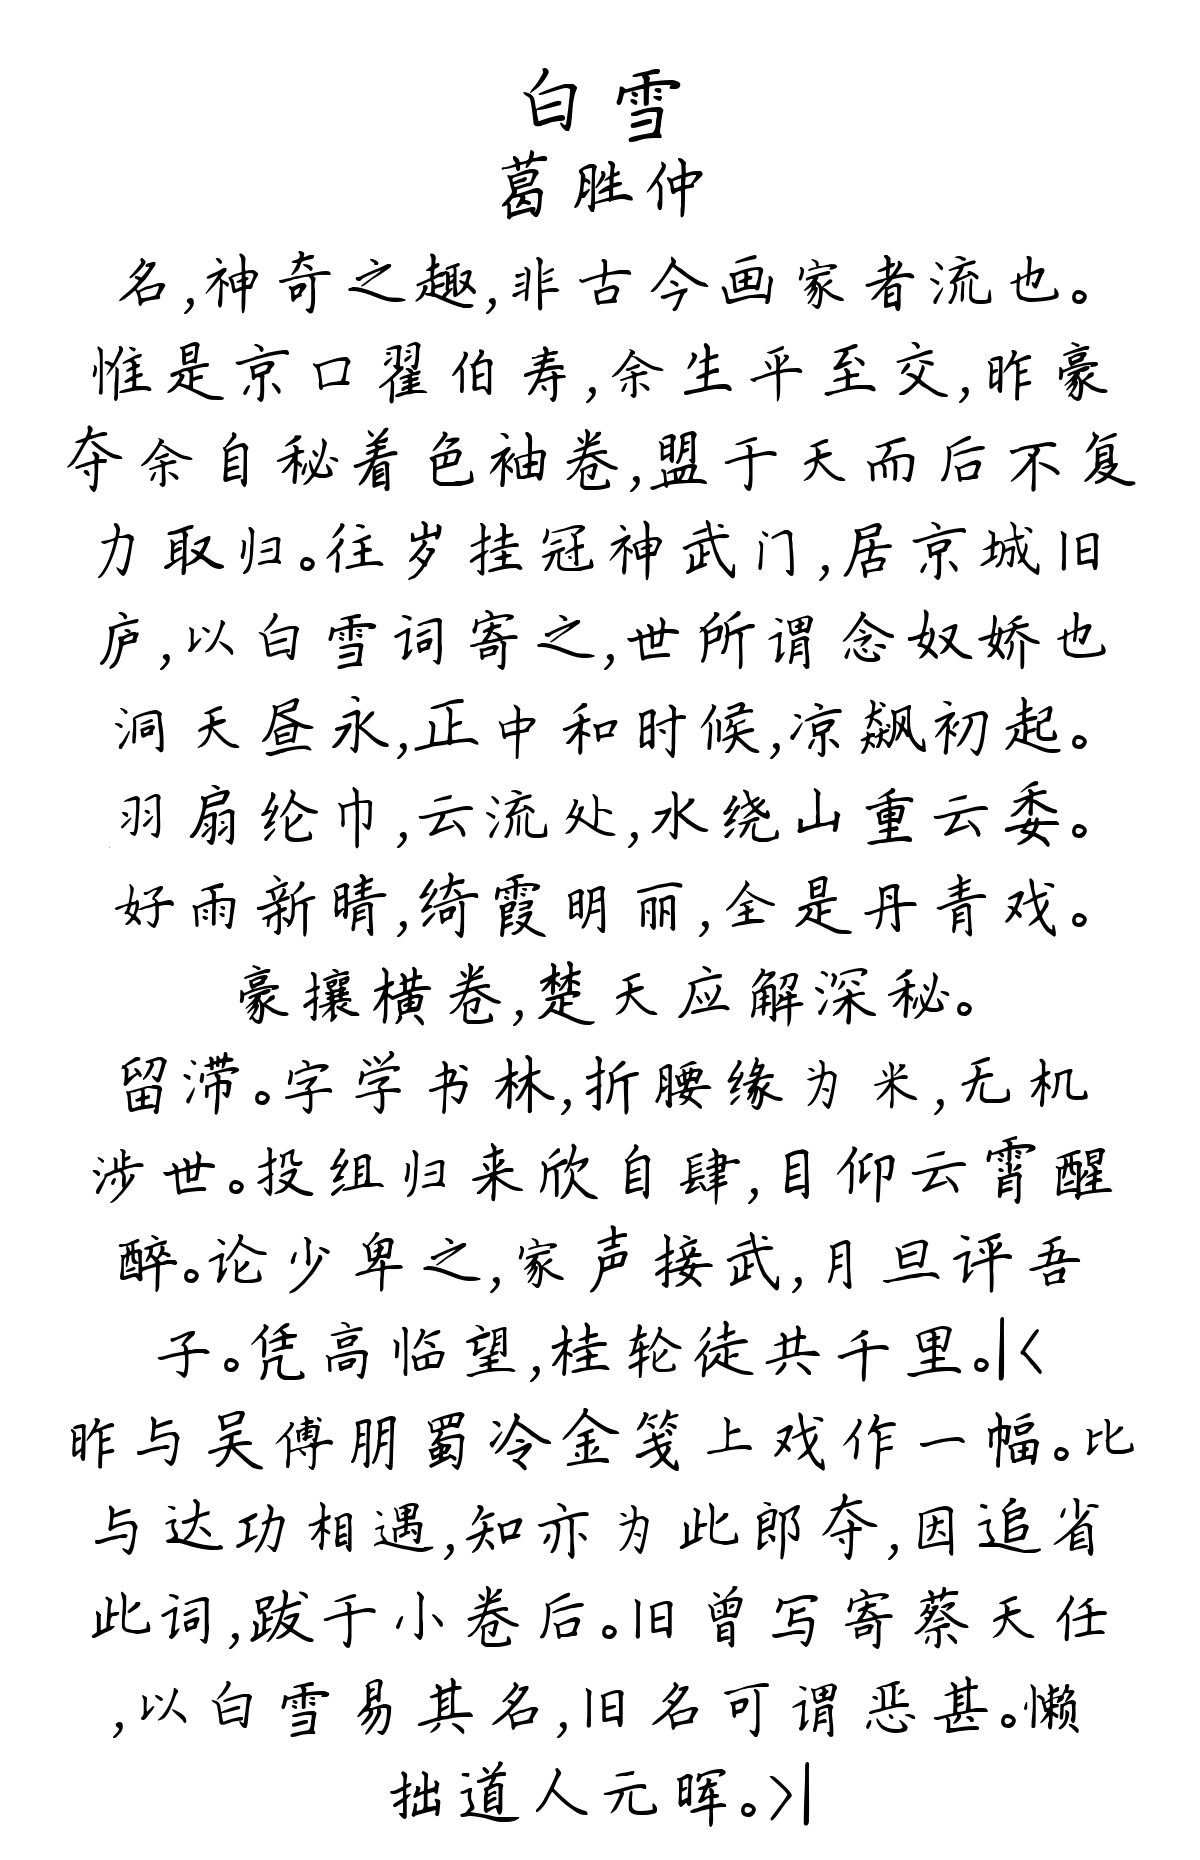 白雪
葛胜仲
名,神奇之趣,非古今画家者流也。
惟是京口翟伯寿,余生平至交,昨豪
夺余自秘着色袖卷,盟于天而后不复
力取归。往岁挂冠神武门,居京城旧
庐,以白雪词寄之,世所谓念奴娇也
洞天昼永,正中和时候,凉飙初起。
羽扇纶巾,云流处,水绕山重云委。
好雨新晴,绮霞明丽,全是丹青戏。
豪攘横卷,楚天应解深秘。
留滞。字学书林,折腰缘为米,无机
涉世。投组归来欣自肆,目仰云霄醒
醉。论少卑之,家声接武,月旦评吾
子。凭高临望,桂轮徒共千里。|<
昨与吴傅朋蜀冷金笺上戏作一幅。比
与达功相遇,知亦为此郎夺,因追省
此词,跋于小卷后。旧曾写寄蔡天任
,以白雪易其名,旧名可谓恶甚。懒
拙道人元晖。>|